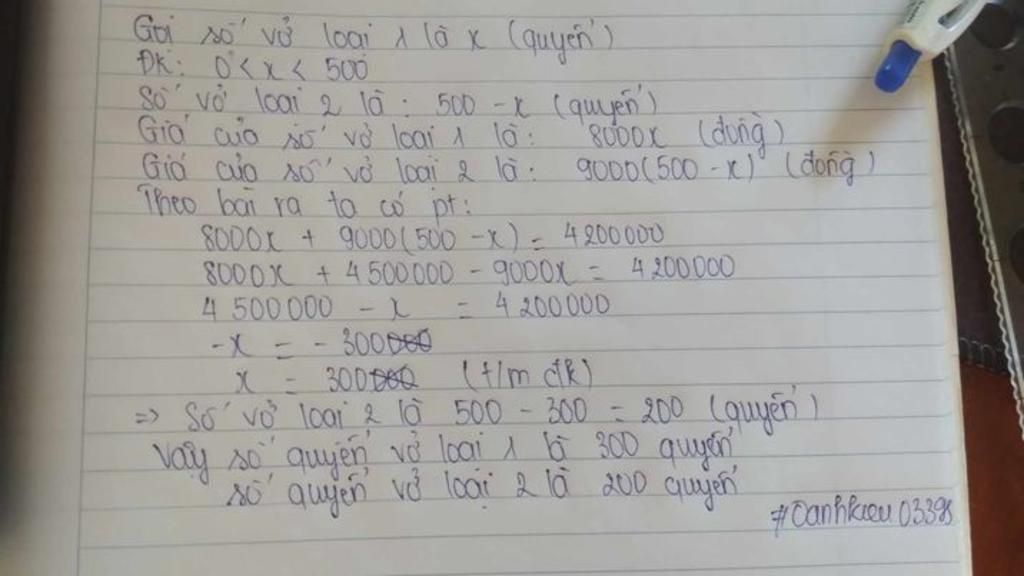 Gọi số vở loại 1 là x (quyển)
ĐK: 0 < x < 500
Số vở loại 2 là: 500 - x (quyển)
Giá của số vở loại 1 là: 8000x (đồng)
Giá của số vở loại 2 là: 9000(500 - x) (đồng)
Theo bài ra ta có pt:
8000x + 9000(500 - x) = 4200000
8000x + 4500000 - 9000x = 4200000
4500000 - x = 4200000
-x = - 300000
x = 300000 (t/m đk)
=> Số vở loại 2 là 500 - 300 = 200 (quyển)
Vậy số quyển vở loại 1 là 300 quyển
số quyển vở loại 2 là 200 quyển
#Oanhkieu03398